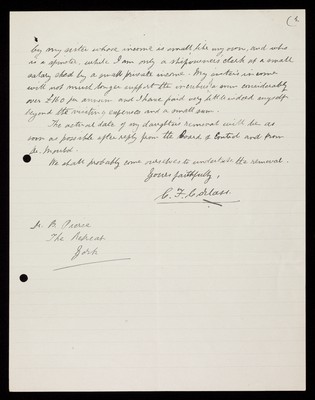 (2
by my sister whose income is small, like my own, and who
is a spinster, while I am only a shipowners clerk at a small
salary eked by a small private income. My sister's income
will not much longer support the incubus a sum considerably
over £160 per annum and I have paid very little indeed myself
beyond the visiting expenses and a small sum.
The actual date of my daughters removal will be as
soon as possible after reply from the Board of Control and from
Dr.
We shall probably come ourselves to undertake the removal.
Yours faithfully,
C. F.
Dr. B. Pierce
The Retreat
York